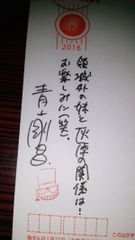 2016
領域外の妹と灰原の関係は!
お楽しみに(笑)
青山剛昌